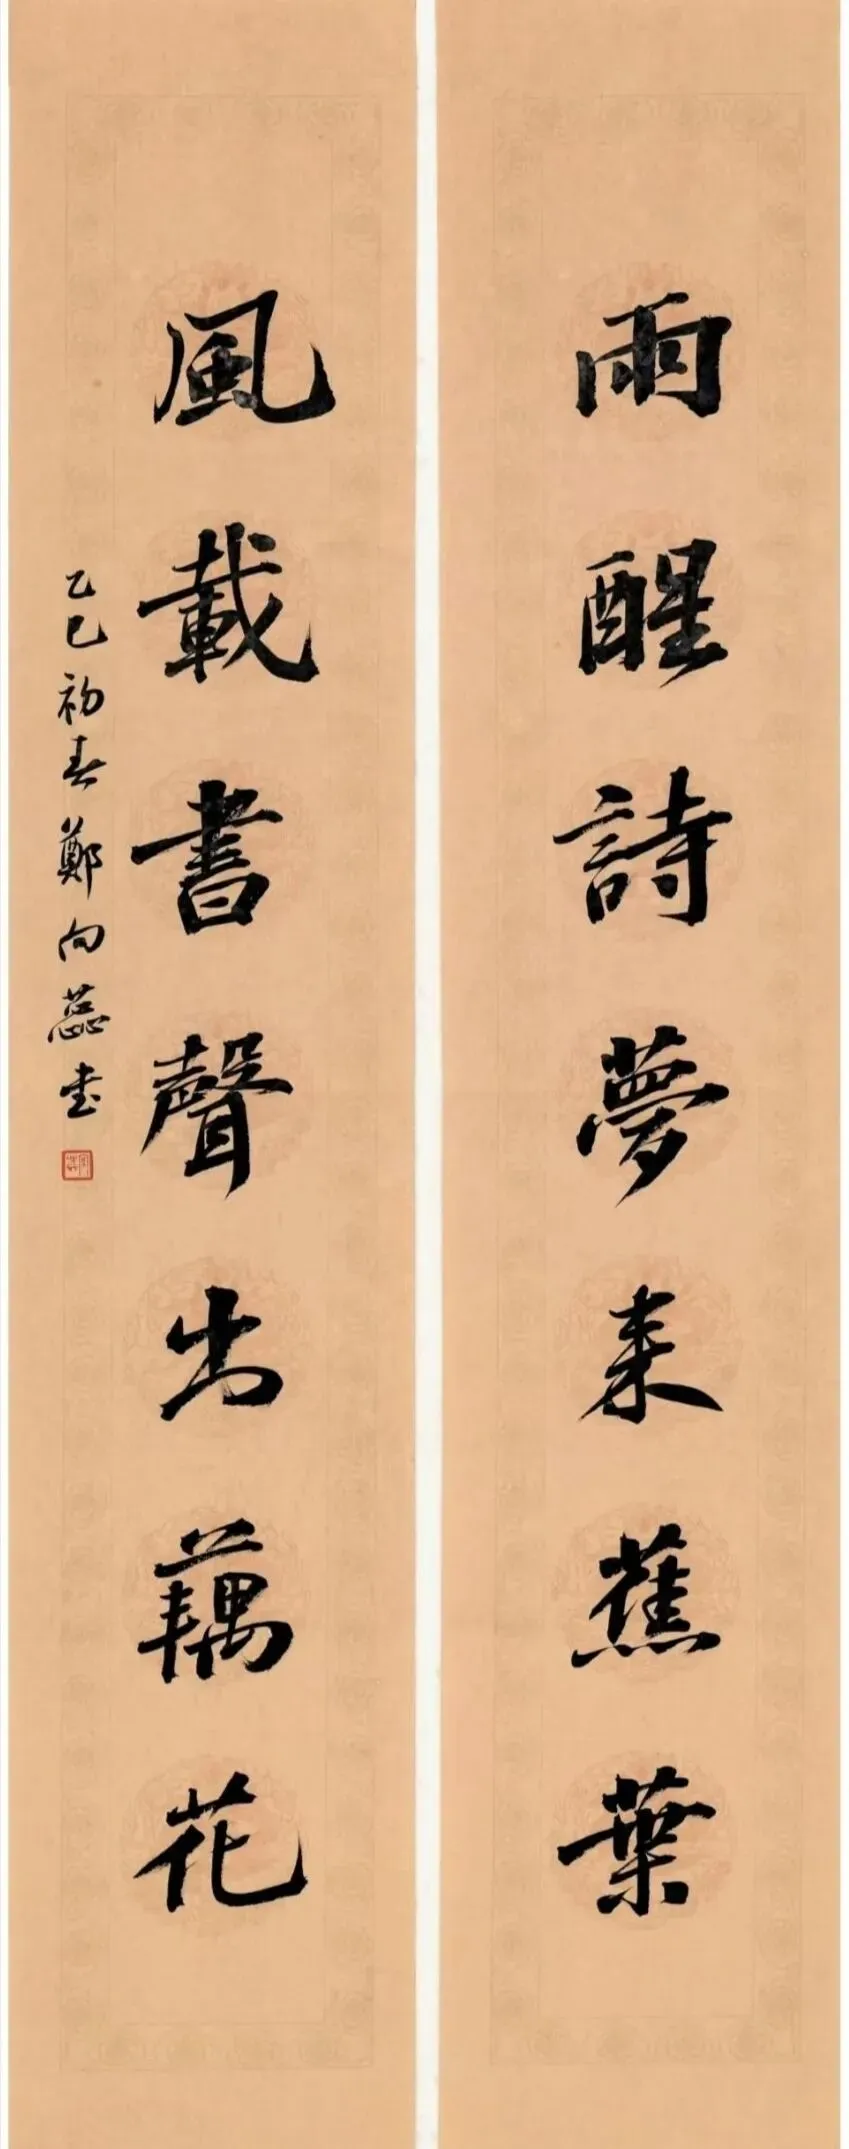 雨醒詩夢來蕉葉
風載書聲出藕花
乙巳初春鄭向蕊書